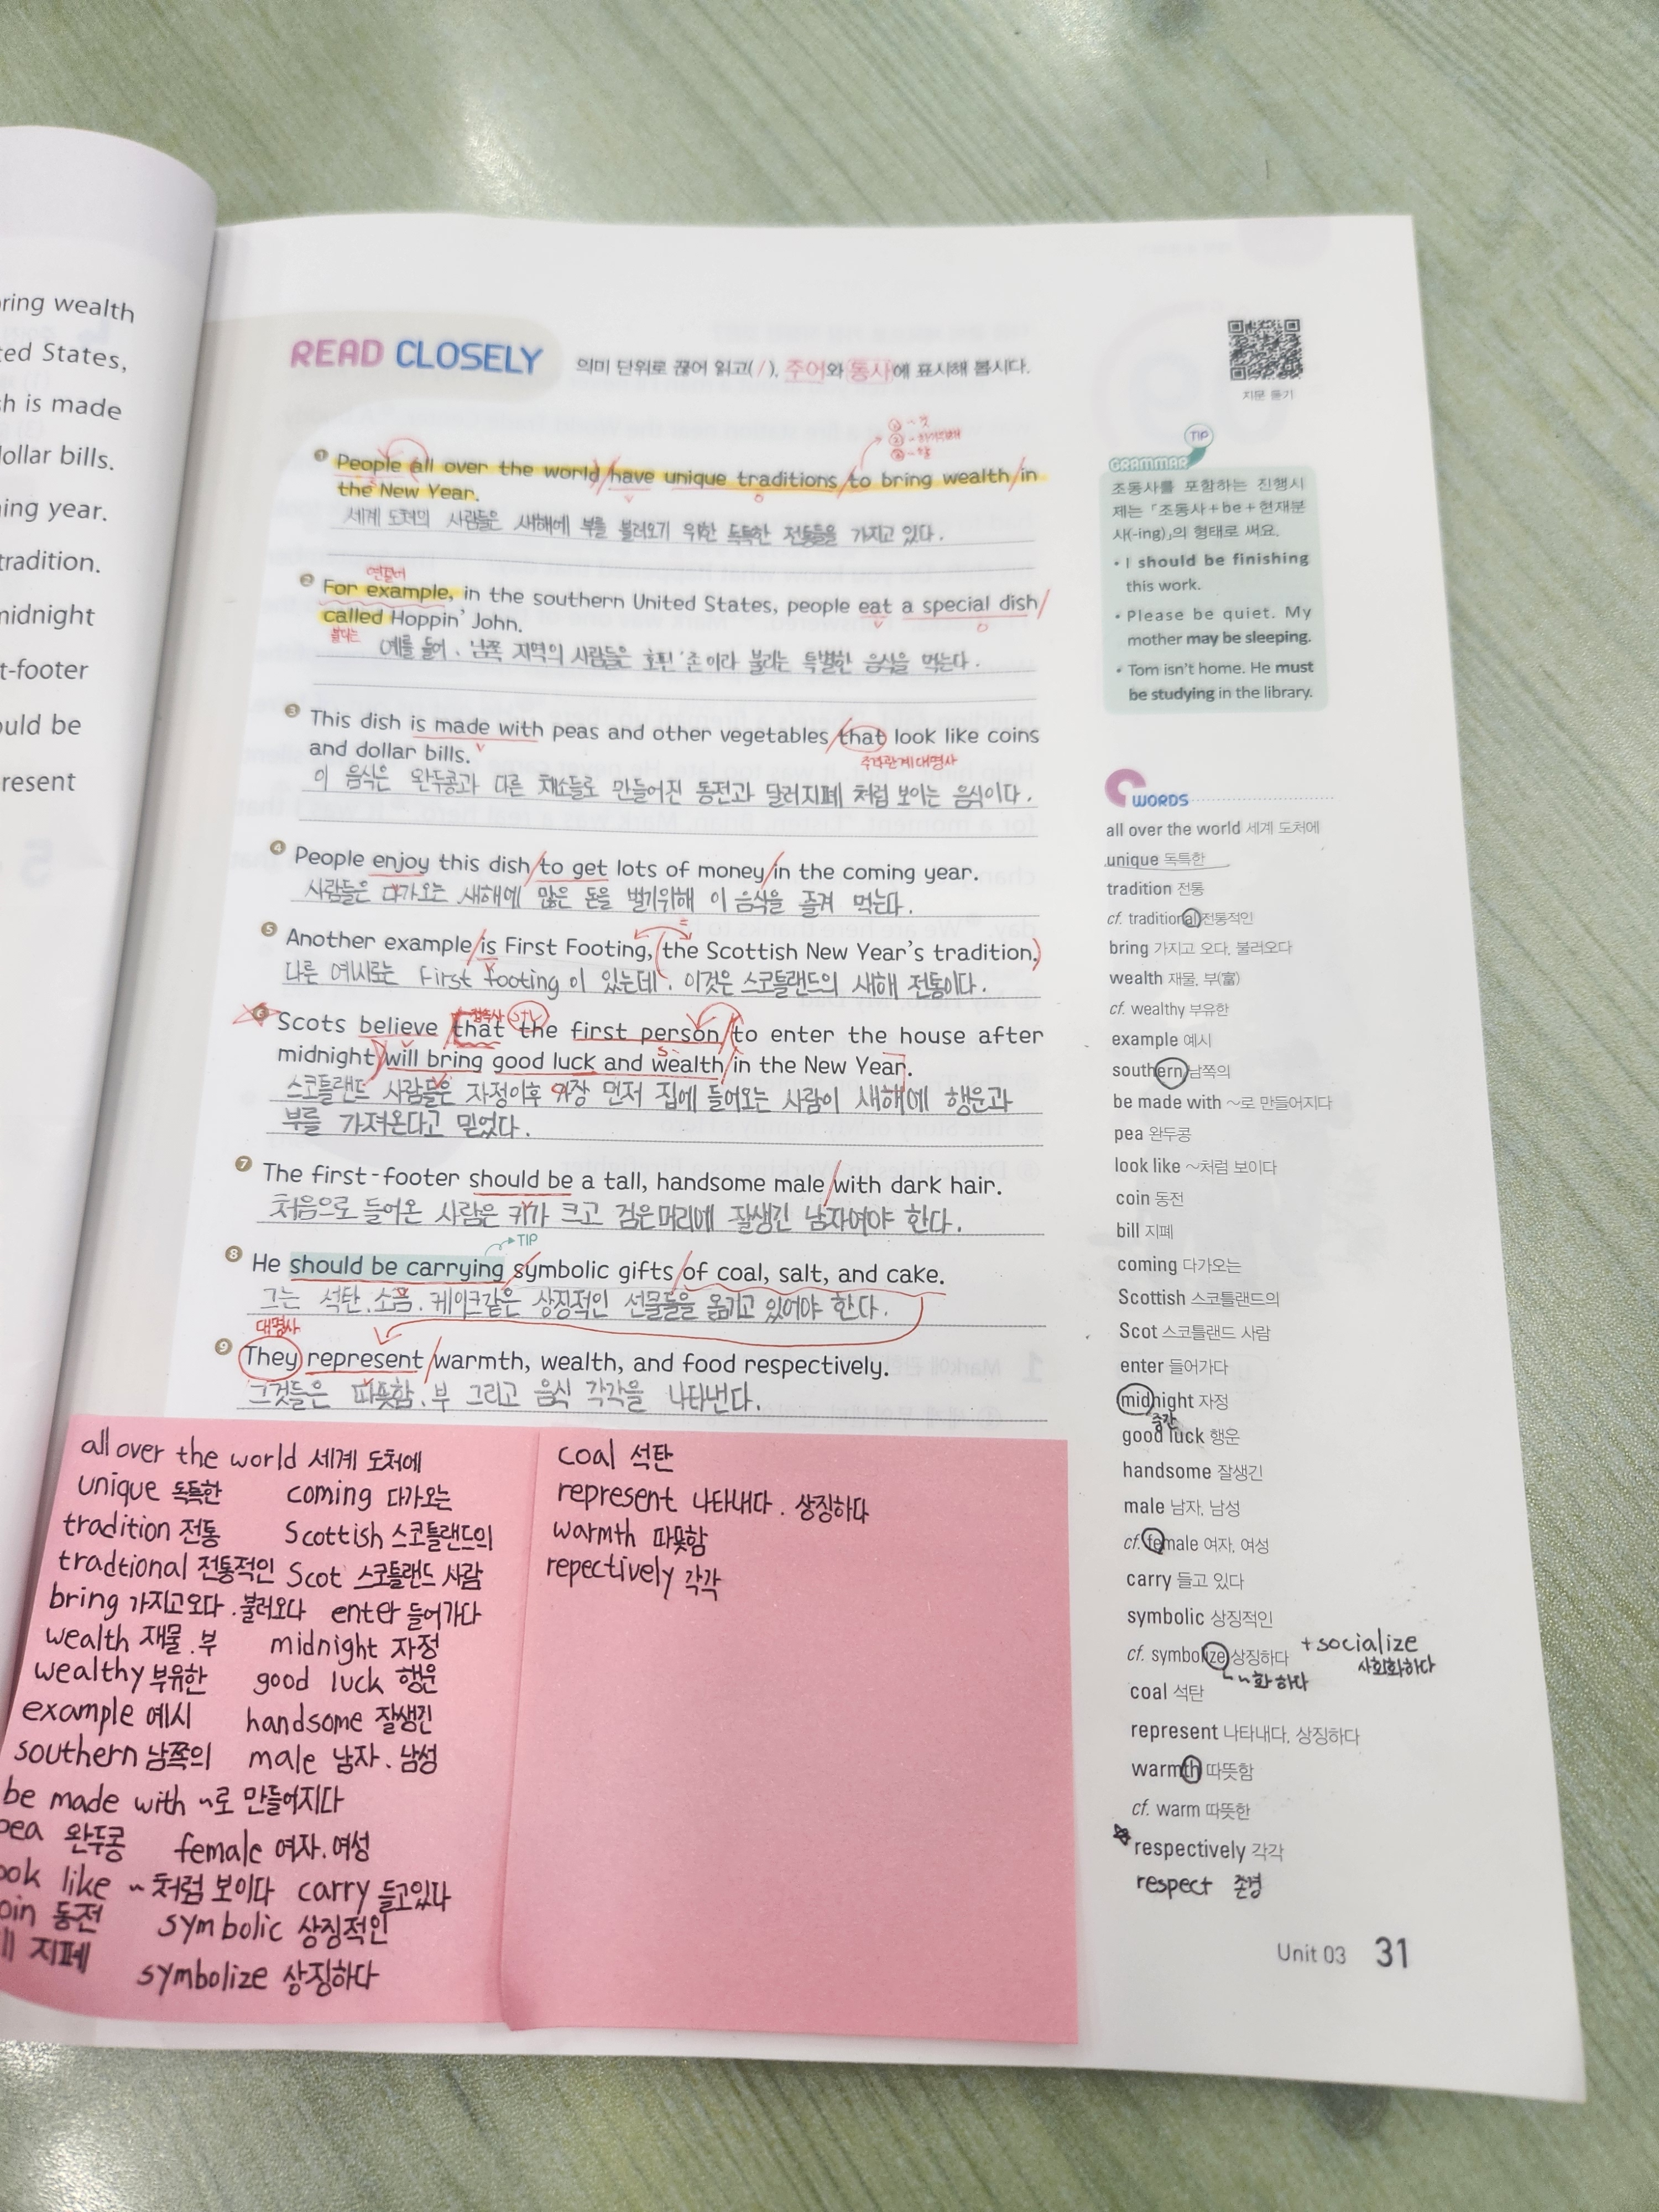 ring wealth
ted States,
h is made
ollar bills.
ing year.
tradition.
midnight
t-footer
ould be
present
READ CLOSELY 의미 단위로 끊어 읽고(/), 주어와 동사에 표시해 봅시다.
지문 듣기
① People all over the world/have unique traditions/to bring wealth/in
the New Year.
세계 도처의 사람들은 새해에 부를 불러오기 위한 독특한 전통들을 가지고 있다.
연결어
② For example, in the southern United States, people eat a special dish/
called Hoppin' John.
불리는
예를 들어, 남쪽 지역의 사람들은 호핀'존이라 불리는 특별한 음식을 먹는다.
③ This dish is made with peas and other vegetables/that look like coins
and dollar bills.
주격관계대명사
이 음식은 완두콩과 다른 채소들로 만들어진 동전과 달러지폐 처럼 보이는 음식이다.
④ People enjoy this dish/to get lots of money/in the coming year.
사람들은 다가오는 새해에 많은 돈을 벌기위해 이 음식을 즐겨 먹는다.
⑤ Another example/is First Footing, (the Scottish New Year's tradition.)
다른 예시로는 First footing이 있는데, 이것은 스코틀랜드의 새해 전통이다.
접속사 S+V
⑥ Scots believe that the first person/to enter the house after
midnight will bring good luck and wealth/in the New Year.
스코틀랜드 사람들은 자정이후 가장 먼저 집에 들어오는 사람이 새해에 행운과
부를 가져온다고 믿었다.
⑦ The first-footer should be a tall, handsome male/with dark hair.
처음으로 들어온 사람은 키가 크고 검은머리에 잘생긴 남자여야 한다.
TIP
⑧ He should be carrying/symbolic gifts/of coal, salt, and cake.
그는 석탄, 소금, 케이크같은 상징적인 선물들을 옮기고 있어야 한다.
대명사
⑨ They represent/warmth, wealth, and food respectively.
그것들은 따뜻함, 부 그리고 음식 각각을 나타낸다.
TIP
GRAMMAR
조동사를 포함하는 진행시
제는 「조동사+be+현재분
사(-ing)」의 형태로 써요.
• I should be finishing
this work.
• Please be quiet. My
mother may be sleeping.
• Tom isn't home. He must
be studying in the library.
WORDS
all over the world 세계 도처에
unique 독특한
tradition 전통
cf. traditional 전통적인
bring 가지고 오다, 불러오다
wealth 재물, 부(富)
cf. wealthy 부유한
example 예시
southern 남쪽의
be made with ~로 만들어지다
pea 완두콩
look like ~처럼 보이다
coin 동전
bill 지폐
coming 다가오는
Scottish 스코틀랜드의
Scot 스코틀랜드 사람
enter 들어가다
midnight 자정
중간
good luck 행운
handsome 잘생긴
male 남자, 남성
cf. female 여자, 여성
carry 들고 있다
symbolic 상징적인
cf. symbolize 상징하다 +socialize
~화 하다 사회화하다
coal 석탄
represent 나타내다, 상징하다
warmth 따뜻함
cf. warm 따뜻한
respectively 각각
respect 존경
Unit 03 31
all over the world 세계 도처에
unique 독특한 coming 다가오는
tradition 전통 Scottish 스코틀랜드의
tradtional 전통적인 Scot 스코틀랜드 사람
bring 가지고오다, 불러오다 enter 들어가다
wealth 재물, 부 midnight 자정
wealthy 부유한 good luck 행운
example 예시 handsome 잘생긴
southern 남쪽의 male 남자, 남성
be made with ~로 만들어지다
pea 완두콩 female 여자, 여성
ook like ~처럼 보이다 carry 들고있다
oin 동전 symbolic 상징적인
ll 지폐 symbolize 상징하다
coal 석탄
represent 나타내다, 상징하다
warmth 따뜻함
repectively 각각